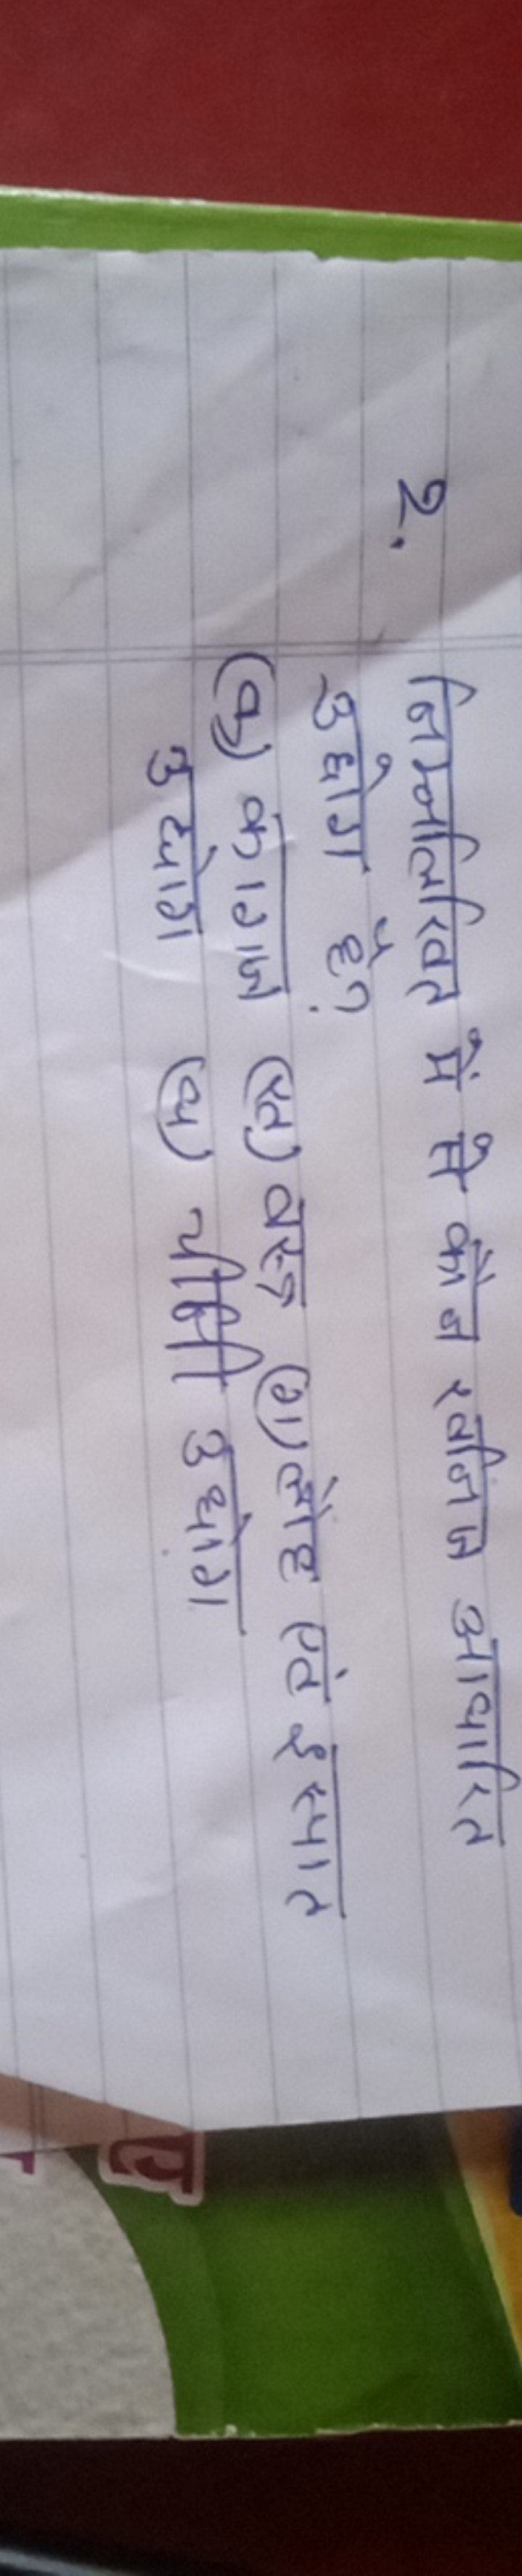 2. निम्नलिखित में से कौन खनिज आधारित
उद्योग है?
(क) कागज (ख) वस्त्र (ग) लौह एवं इस्पात
उद्योग (घ) चीनी उद्योग